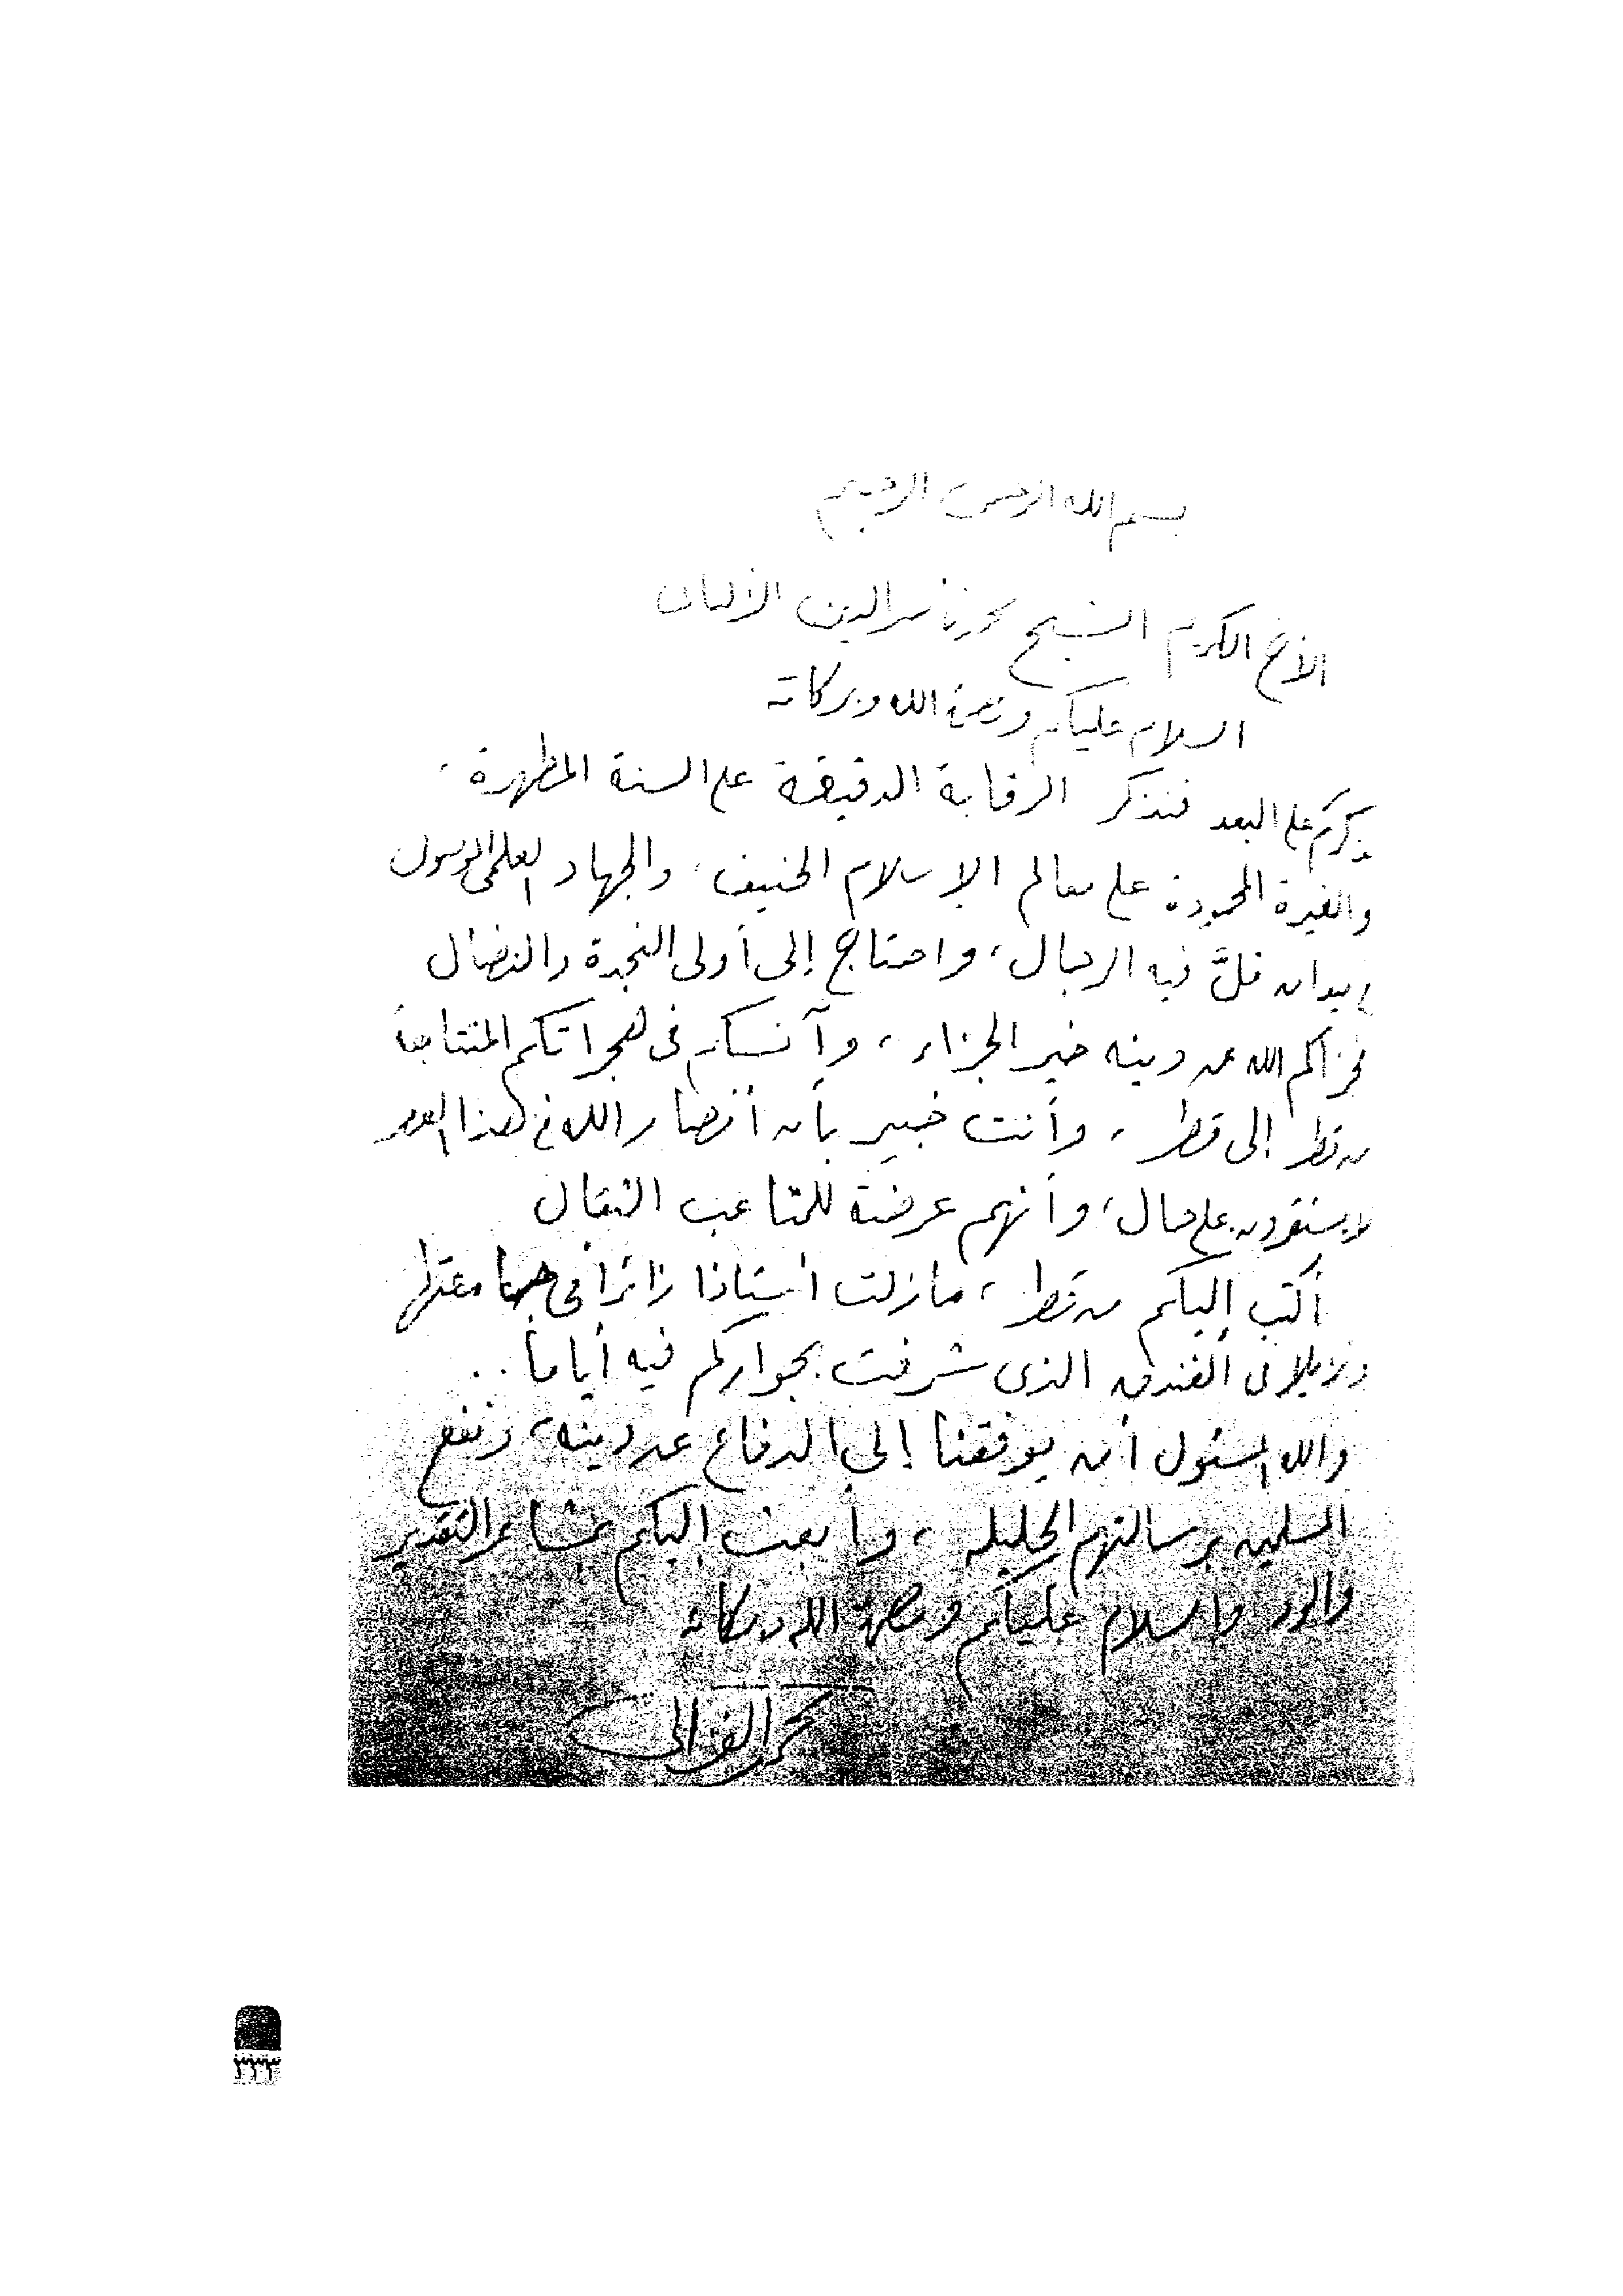 بسم الله الرحمن الرحيم
الأخ الكريم الشيخ محمد ناصر الدين الألبانى
السلام عليكم ورحمة الله وبركاته
على البعد فنذكر الرقابة الدقيقة على السنة المطهرة،
والغيرة المحمودة على معالم الإسلام الحنيف، والجهاد العلمى
ميدان قلَّ فيه الرجال، واحتاج إلى أولى النجدة والنضال
فجزاكم الله عن دينه خير الجزاء، وآنسكم فى هجراتكم المتتابعة
من قطر إلى قطر، وأنت خبير بأن أنصار الله فى هذا العصر
لا يستقرون على حال، وأنهم عرضة للمتاعب الثقال
أكتب إليكم من قطر، مازلت أستاذا زائرا فى جامعتها
ونزيلا فى الفندق الذى شرفت بجواركم فيه أياما ..
والله المسئول أن يوفقنا إلى الدفاع عن دينه، ونفع
المسلمين برسالتهم الجليلة، وأبعث إليكم بمشاعر التقدير
والود والسلام عليكم ورحمة الله وبركاته
محمد الغزالى